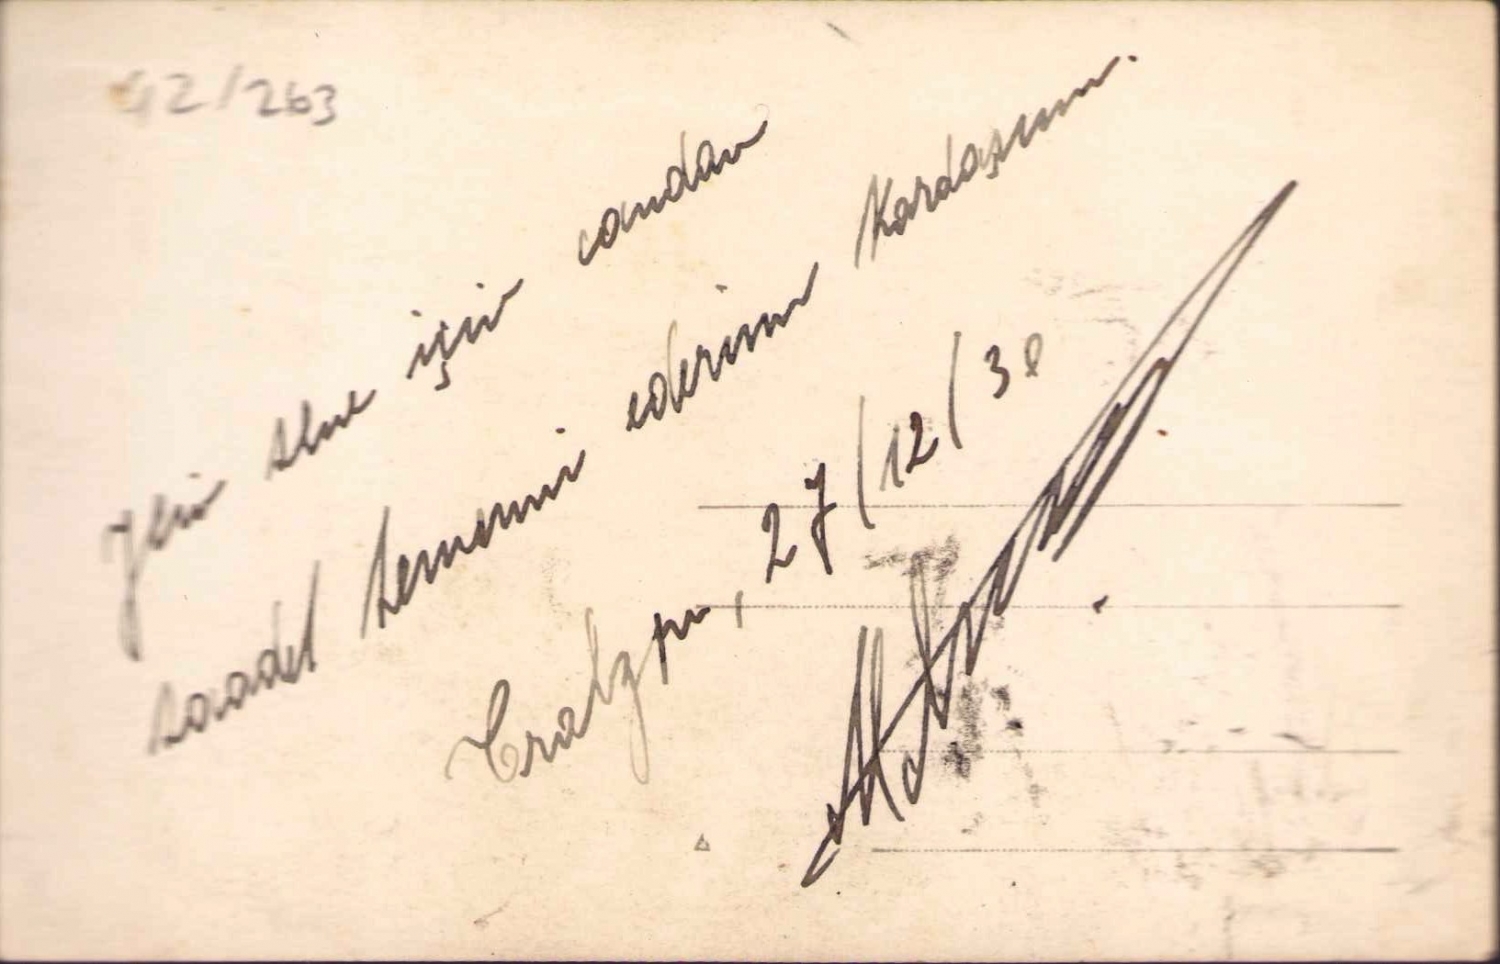 42/263
Yeni sene için candan
saadet temenni ederim Kardaşım.
27/12/30